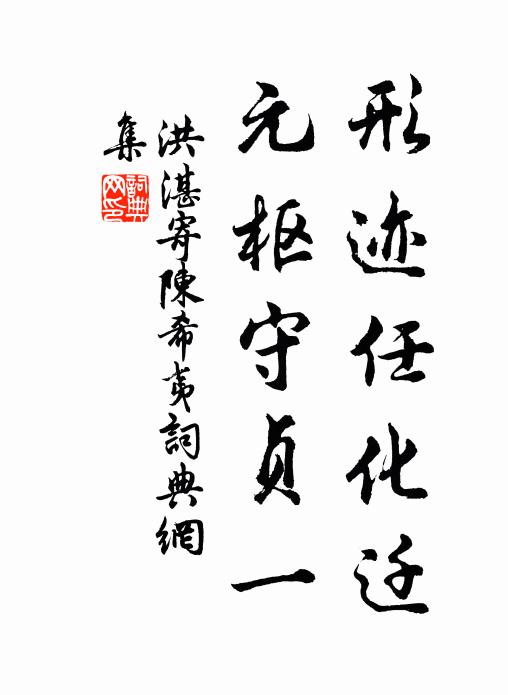 形迹任化迁
元枢守贞一
洪湛寄陳希夷詞典網
集
詞典
网印